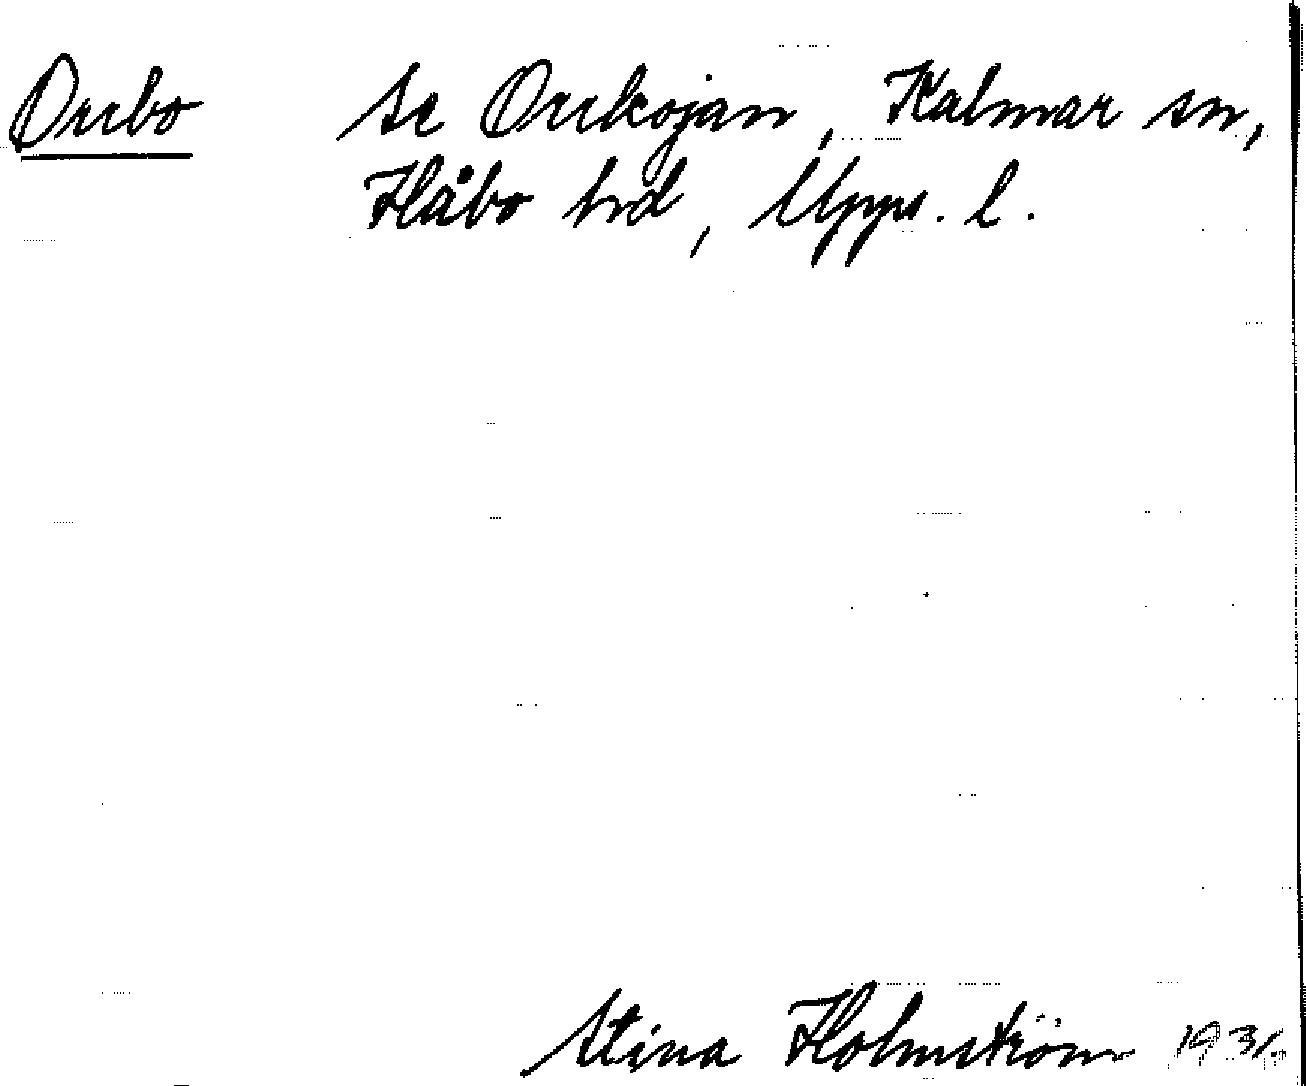 Orrbo Se Orrkojan, Kalmar sn,
Håbo hrd, Upps. l.
Stina Holmström 1931.